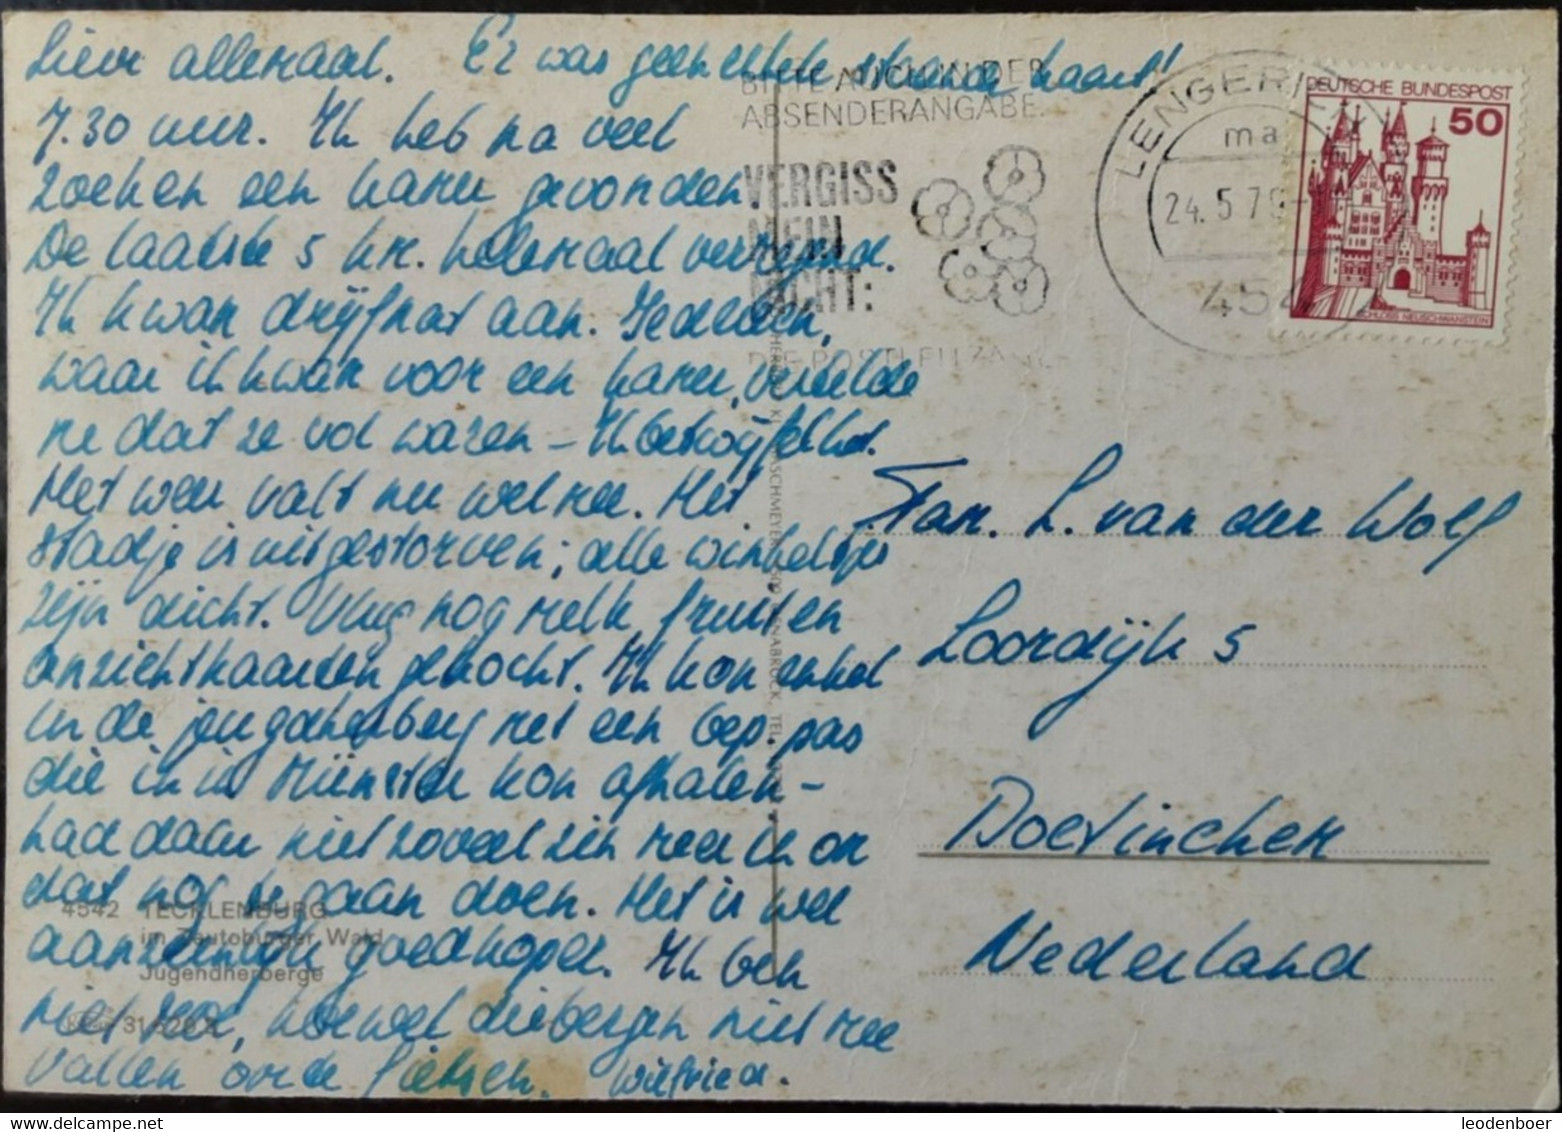 Lieve allemaal. Er was geen enkele staande kaart!
7.30 uur. Ik heb na veel
zoeken een kamer gevonden
De laatste 5 km. helemaal verregend.
Ik kwam drijfnat aan. Iedereen,
waar ik kwam voor een kamer, vertelde
me dat ze vol waren - Ik betwijfel het.
Het weer valt nu wel mee. Het
stadje is uitgestorven; alle winkeltjes
zijn dicht. Vlug nog melk fruit en
anzichtkaarten gekocht. Ik kon enkel
in de jeugdherberg met een pas
die ik in Münster kon afhalen -
had daar niet zoveel zin meer in om
dat nog te gaan doen. Het is wel
aanzienlijk goedkoper. Ik ben
niet moe, hoewel die bergen niet mee
vallen om te fietsen. Wilfried.
BITTE AUCH IN DER
ABSENDERANGABE
VERGISS
MEIN
NICHT:
DIE POSTLEITZAHL
LENGERICH
ma
24.5.79
454
DEUTSCHE BUNDESPOST
50
SCHLOSS NEUSCHWANSTEIN
Fam. L. van der Wolf
Loordijk 5
Doetinchem
Nederland
4542 TECKLENBURG
im Teutoburger Wald
Jugendherberge
leodenboer